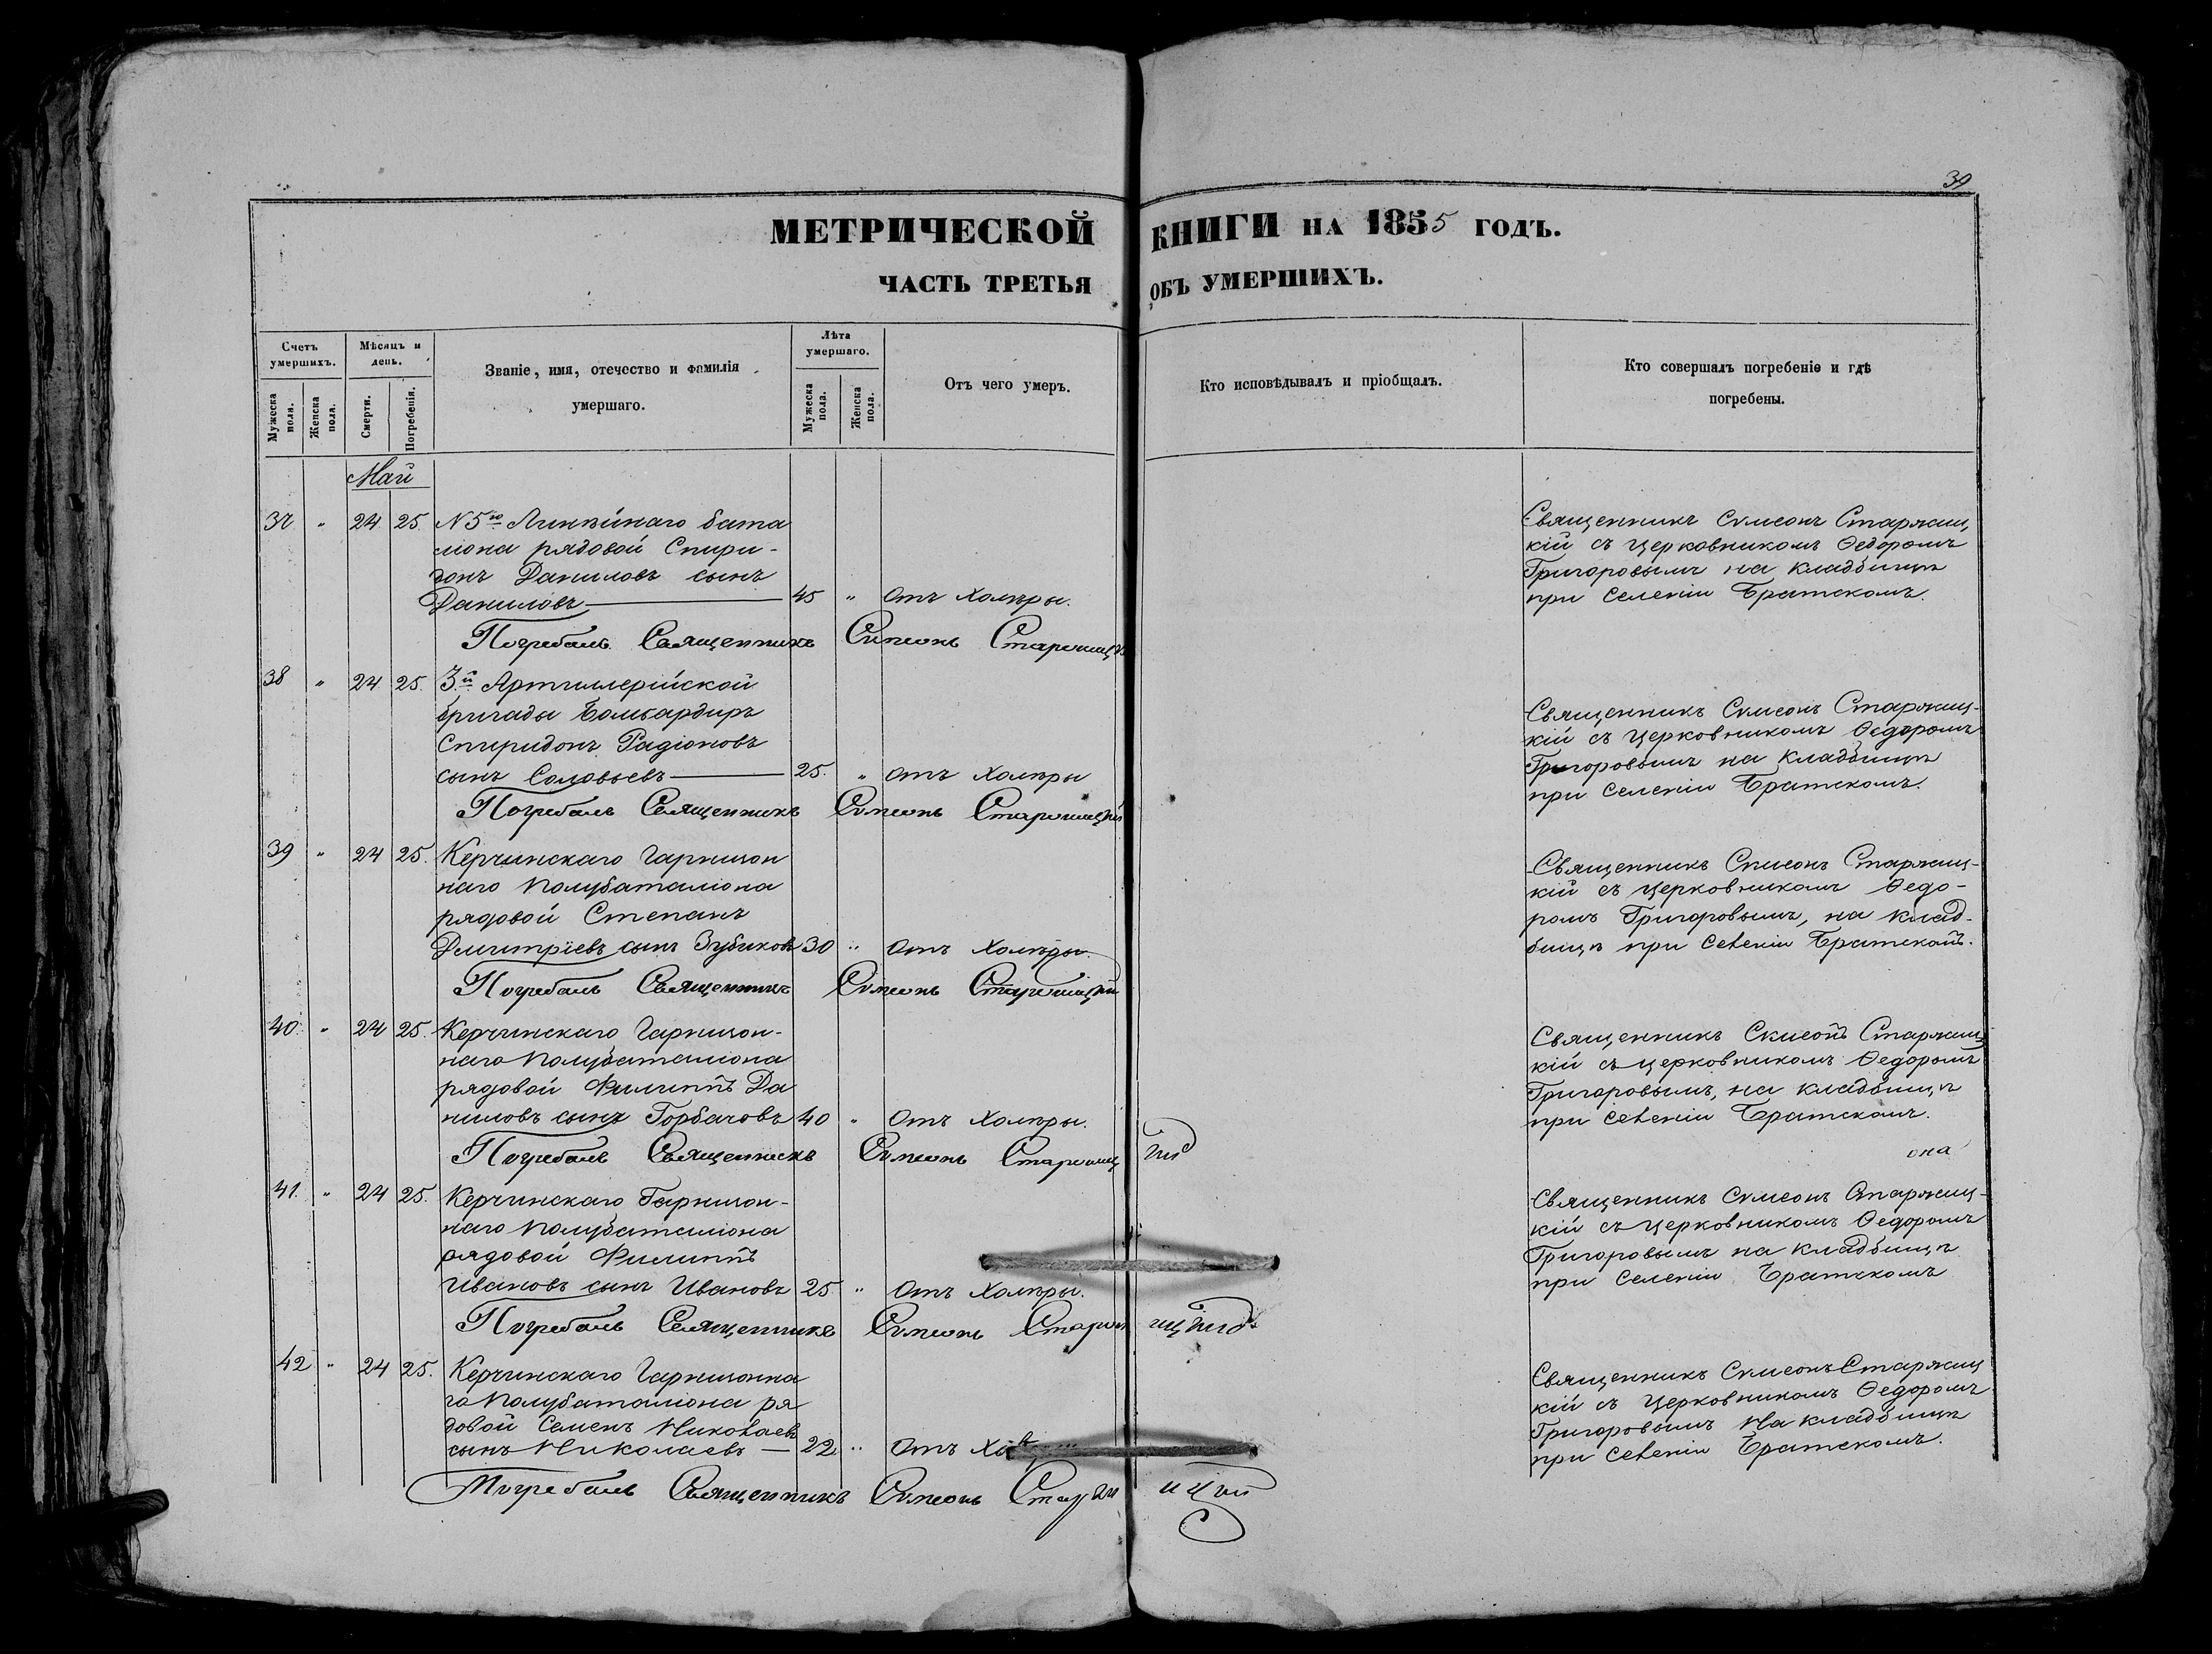 39
МЕТРИЧЕСКОЙ КНИГИ НА 1855 ГОДЪ.
ЧАСТЬ ТРЕТЬЯ ОБЪ УМЕРШИХЪ.
Счетъ умершихъ.
Мужеска пола.
Женска пола.
Мѣсяцъ и день.
Смерти.
Погребенія.
Званіе, имя, отечество и фамилія
умершаго.
Лѣта умершаго.
Мужеска пола.
Женска пола.
Отъ чего умеръ.
Кто исповѣдывалъ и пріобщалъ.
Кто совершалъ погребеніе и гдѣ
погребены.
Май
37 " 24 25 N 5го Линѣйнаго бата
ліона рядовой Спири-
донъ Даниловъ сынъ
Даниловъ 45 " Отъ Холѣры.
Священникъ Сѵмеонъ Старжиц
кій съ церковникомъ Ѳедоромъ
Григоровымъ на кладбищѣ
при Селеніи Братскомъ.
Погребалъ Священникъ Симеонъ
38 " 24 25. 3й Артиллерійской
бригады Бомбардиръ
Спиридонъ Радіоновъ
сынъ Соловьевъ 25. " отъ Холѣры
Священникъ Сѵмеонъ Старжиц-
кій съ церковникомъ Ѳедоромъ
Григоровымъ на кладбищѣ
при Селеніи Братскомъ.
Погребалъ Священникъ Симеонъ
39 " 24 25. Керчинскаго Гарнизон
наго полубаталіона
рядовой Степанъ
Дмитріевъ сынъ Зубиковъ 30 " отъ Холѣры.
Священникъ Сѵмеонъ Старжиц-
кій съ церковникомъ Ѳедо-
ромъ Григоровымъ, на клад-
бищѣ при Селеніи Братскомъ.
Погребалъ Священникъ Симеонъ
40 " 24 25. Керчинскаго Гарнизон-
наго полубаталіона
рядовой Филиппъ Да
ниловъ сынъ Горбачовъ 40 " Отъ Холѣры.
Священникъ Сѵмеонъ Старжиц
кій съ церковникомъ Ѳедоромъ
Григоровымъ, на кладбищѣ
при Селеніи Братскомъ.
Погребалъ Священникъ Симеонъ
она
41. " 24 25. Керчинскаго Гарнизон-
наго полубаталіона
рядовой Филиппъ
Ивановъ сынъ Ивановъ 25 " Отъ Холѣры.
Священникъ Сѵмеонъ Старжиц-
кій съ церковникомъ Ѳедоромъ
Григоровымъ на кладбищѣ
при Селеніи Братскомъ
Погребалъ Священникъ Симеонъ
42 " 24 25. Керчинскаго Гарнизонна
го полубаталіона ря
довой Семенъ Николаевъ
сынъ Николаевъ 22 " Отъ
Священникъ Сѵмеонъ Старжиц
кій съ церковникомъ Ѳедоромъ
Григоровымъ на кладбищѣ
при Селеніи Братскомъ.
Погребалъ Священникъ Симеонъ